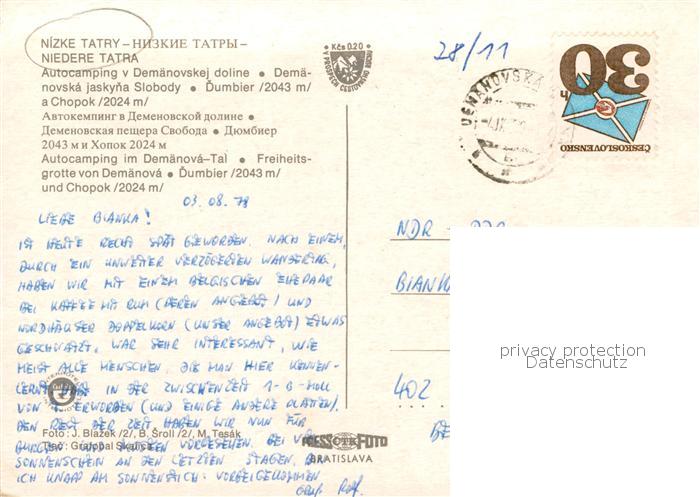 NÍZKE TATRY – НИЗКИЕ ТАТРЫ –
NIEDERE TATRA
Autocamping v Demänovskej doline • Demä-
novská jaskyňa Slobody • Ďumbier /2043 m/
a Chopok /2024 m/
Автокемпинг в Деменовской долине •
Деменовская пещера Свобода • Дюмбиер
2043 м и Хопок 2024 м
Autocamping im Demänová–Tal • Freiheits-
grotte von Demänová • Ďumbier /2043 m/
und Chopok /2024 m/
Kčs 0.20
V PROSPECH CESTOVNÉHO RUCHU
28/11
DEMÄNOVSKÁ
30
ČESKOSLOVENSKO
03.08.78
LIEBE BIANKA!
IST HEUTE RECHT SPÄT GEWORDEN. NACH EINEM,
DURCH EIN UNWETTER VERZÖGERTEN WANDERUNG,
HABEN WIR MIT EINEM BELGISCHEN EHEPAAR
BEI KAFFEE MIT RUM (DEREN ANGEBOT) UND
NORDHÄUSER DOPPELKORN (UNSER ANGEBOT) ETWAS
GESCHWATZT. WAR SEHR INTERESSANT, WIE
MEIST ALLE MENSCHEN, DIE MAN HIER KENNEN-
LERNT. IN DER ZWISCHENZEIT 1-B-MOLL
VON ERWORBEN (UND EINIGE ANDERE PLATTEN).
DEN REST DER ZEIT HABEN WIR NUN FÜR
UND VORGESEHEN. BEI
SONNENSCHEIN AN DEN LETZTEN TAGEN,
ICH KNAPP AM SONNENSTICH VORBEIGEKOMMEN
Gruß Ralf
NDR
BIANK
402
Foto: J. Blažek /2/, B. Šroll /2/, M. Tesák
Tlač: Grafobal Skalica
PRESSFOTO
BRATISLAVA
privacy protection
Datenschutz